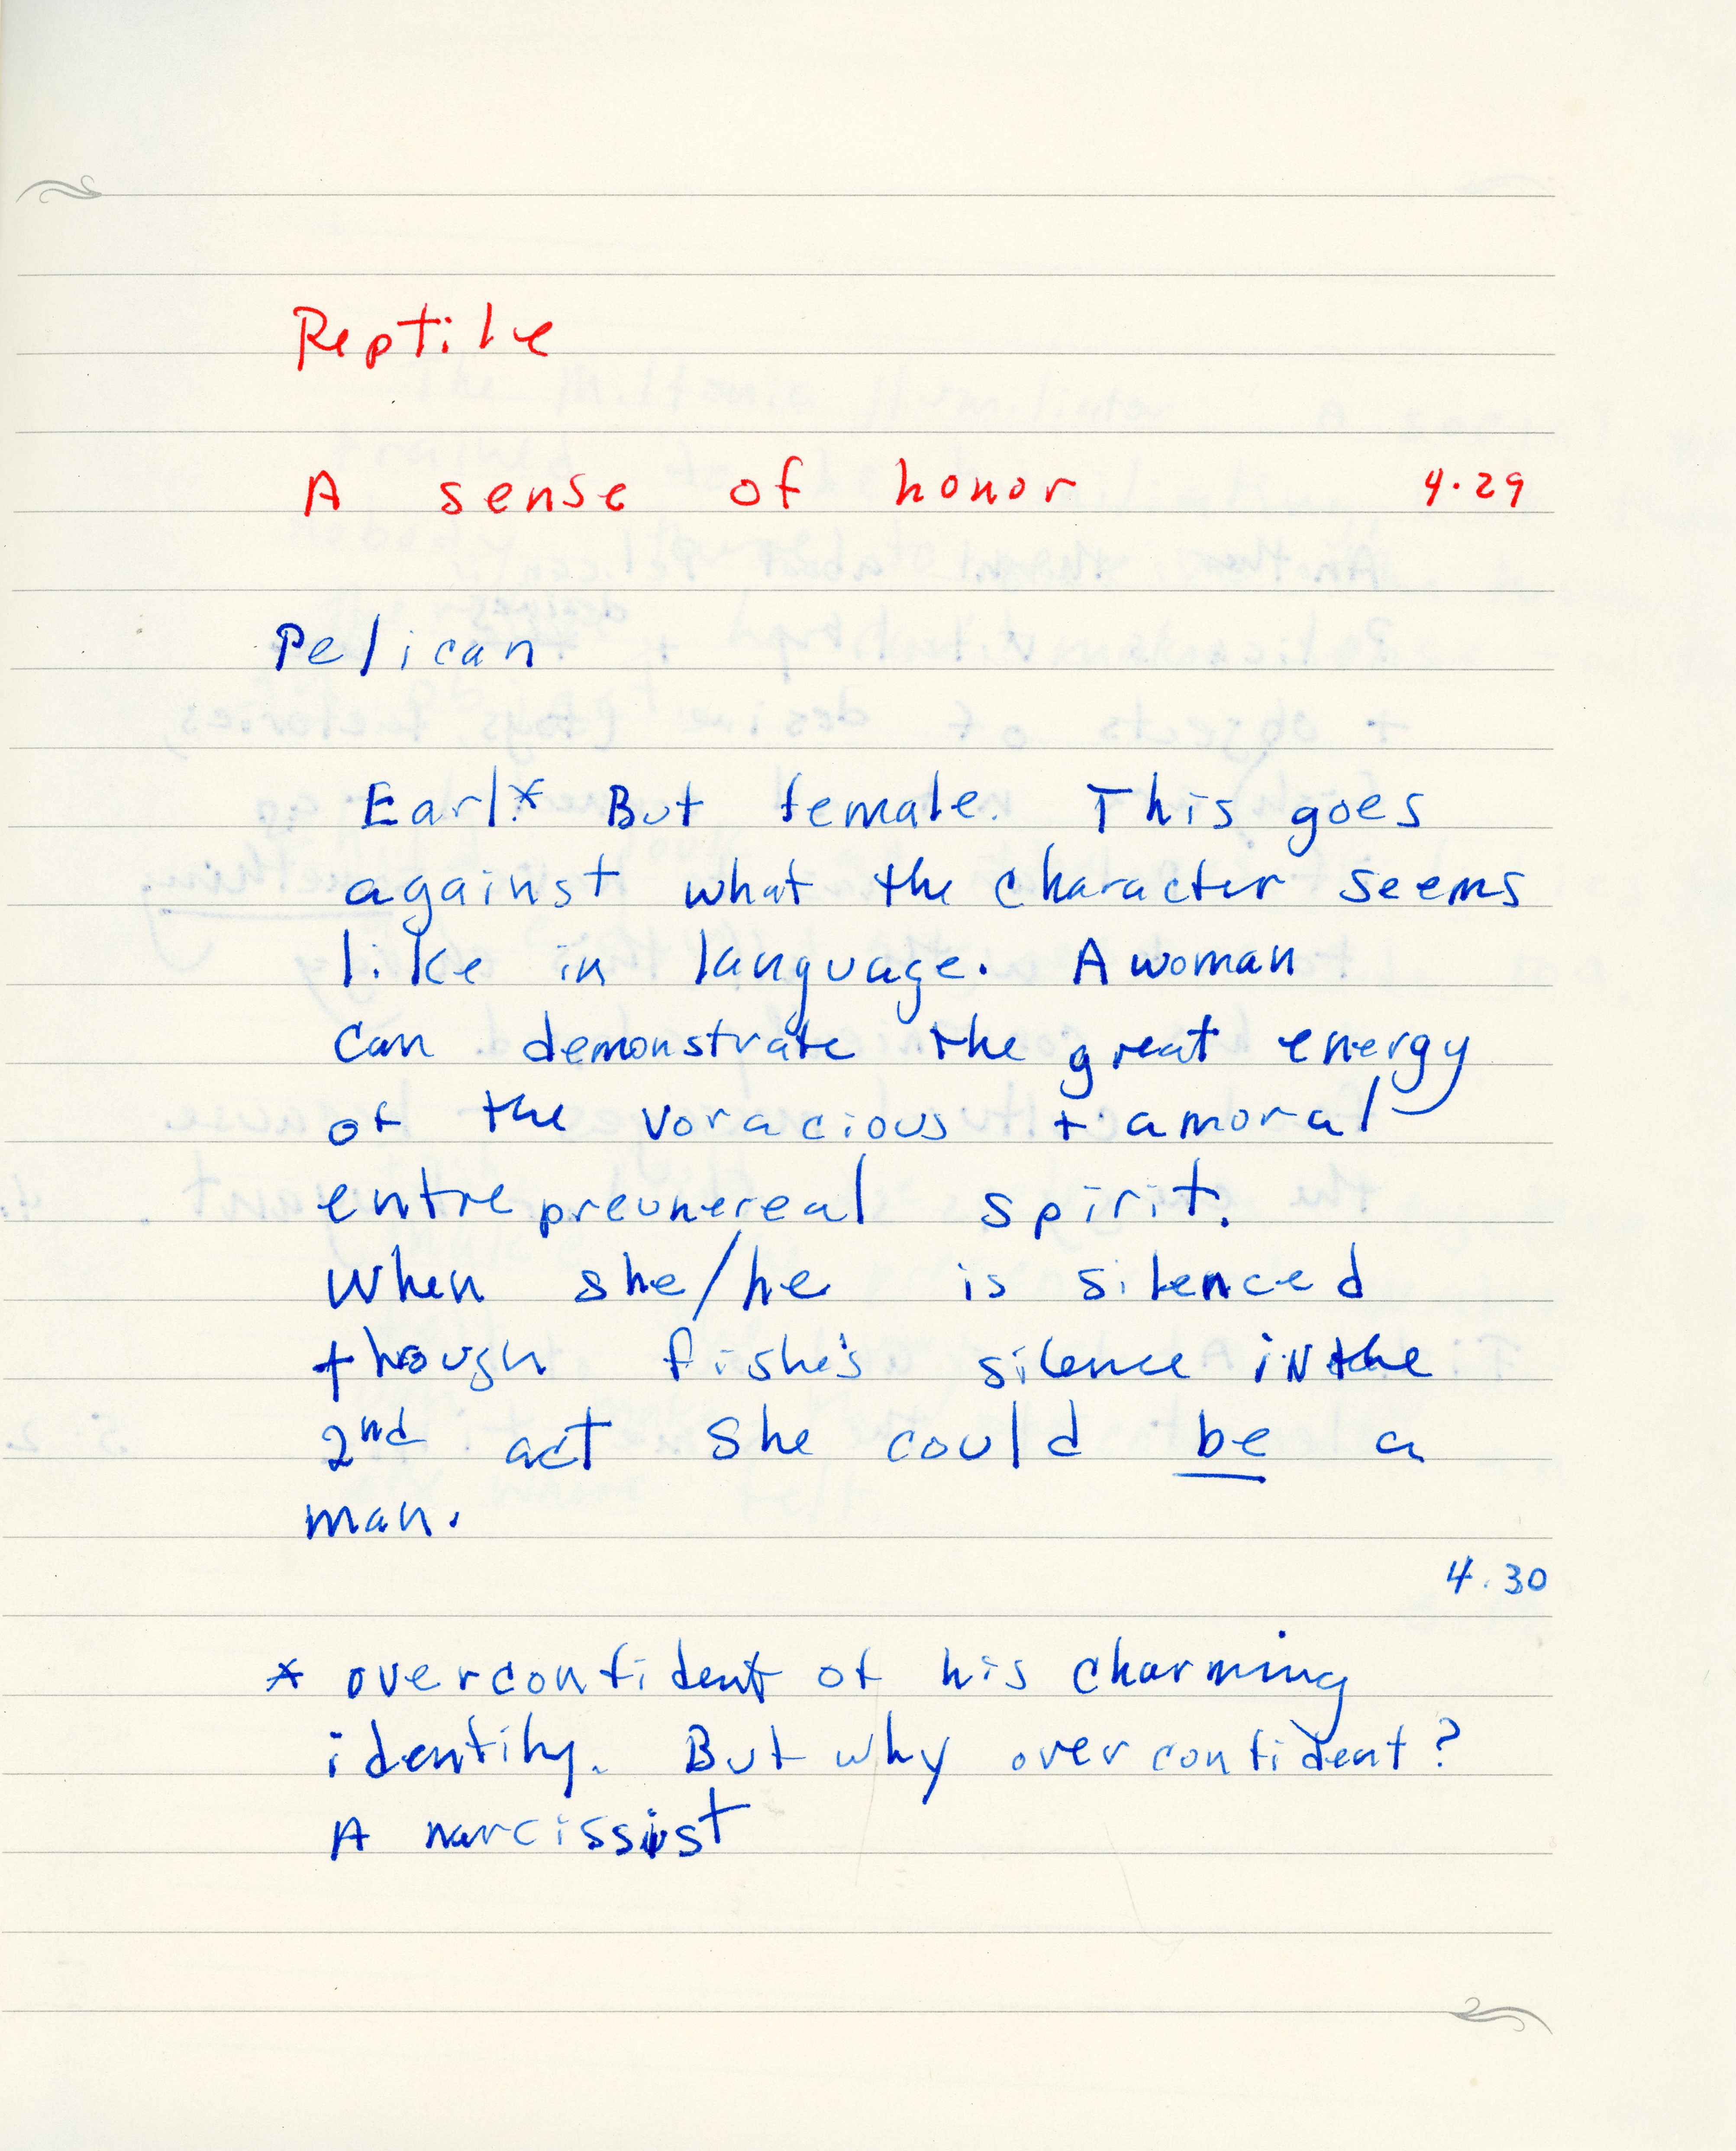 Reptile
A sense of honor 4.29
Pelican
Earl.* But female. This goes
against what the character seems
like in language. A woman
can demonstrate the great energy
of the voracious + amoral
entrepreunereal spirit.
When she/he is silenced
though fishe's silence in the
2nd act she could be a
man.
4.30
* overconfident of his charming
identity. But why overconfident?
A narcissist